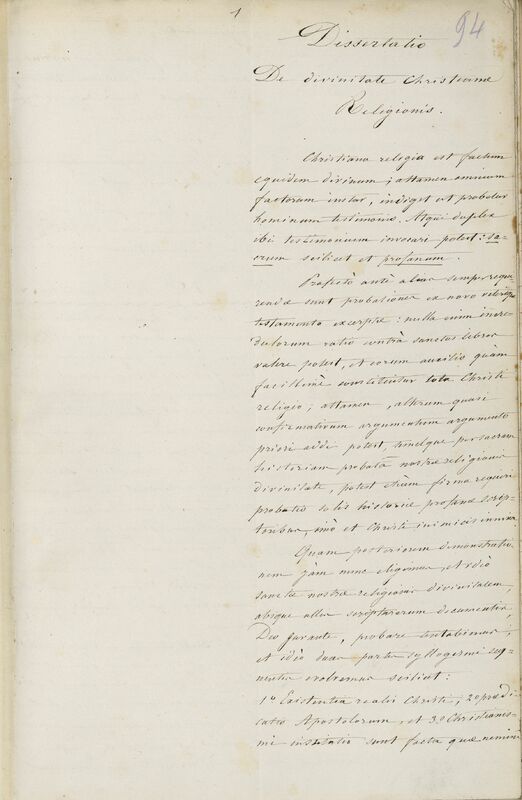 1
94
Dissertatio
De divinitate Christianæ
Religionis.
Christiana religio est factum
equidem divinum; attamen omnium
factorum instar, indiget ut probetur
hominum testimonio. Atqui duplex
ibi testimonium invocari potest: sa-
crum scilicet et profanum.
Profectò antè alias semper requi
rendæ sunt probationes ex novo veterique
testamento excerptæ: nulla enim incre
dulorum ratio contrà sanctos libros
valere potest, et eorum auxilio quàm
facillimè constituitur tota Christi
religio; attamen, alterum quasi
confirmativum argumentum argumento
priori addi potest, semelque per sacram
historiam probatâ nostræ religionis
divinitate, potest etiam firma requiri
probatio solis historiæ profanæ scrip-
toribus, imò et Christi inimicis
Quam posteriorem demonstratio
nem jàm nunc eligimus, et ideò
sanctæ nostræ religionis divinitatem,
absque ullis scripturarum documentis,
Deo juvante, probare tentabimus,
et ideò duas partes syllogismi seq-
uentis evolvemus scilicet:
1º Existentia realis Christi, 2º prædi
catio Apostolorum, et 3º Christianis-
mi institutio sunt facta quæ nemini